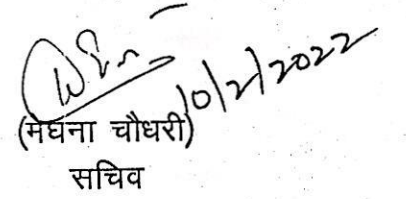 10/2/2022
(मेघना चौधरी)
सचिव